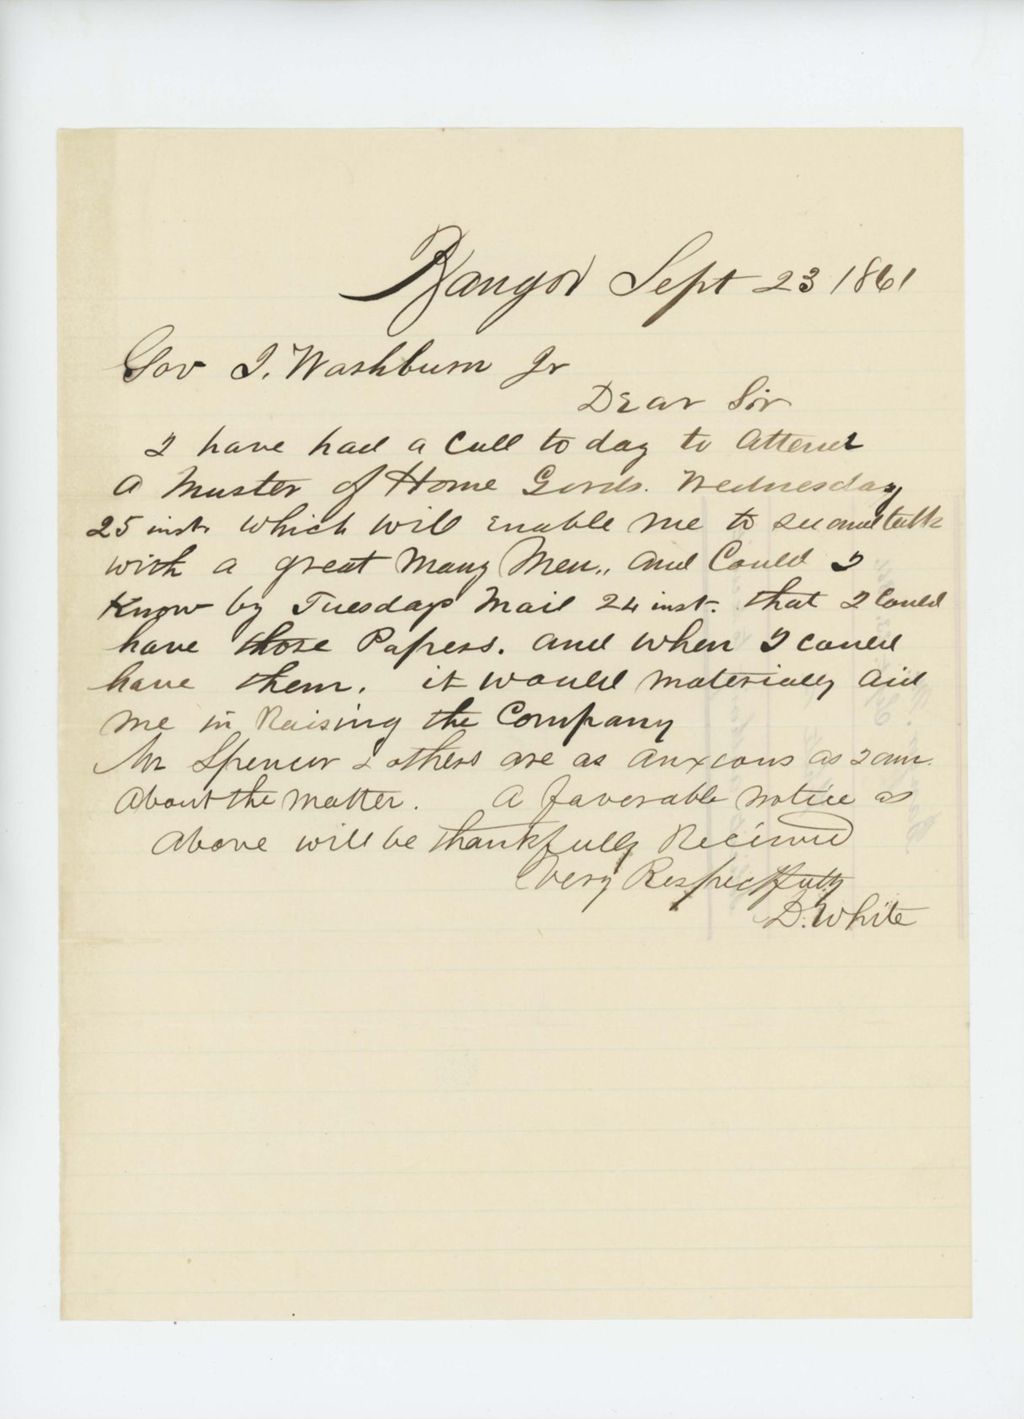 Bangor Sept 23 1861
Gov I. Washburn Jr
Dear Sir
I have had a Call to day to Attend
a Muster of Home Gards. Wednesday
25 inst. which will enable me to see and talk
with a great Many Men., and Could I
Know by Tuesdays Mail 24 inst. that I Could
have those Papers. and when I could
have them. it would materialy Aid
me in Raising the Company
Mr Spencer & others are as anxious as I am.
About the matter. A favorable notice as
above will be thankfully Received
Very Respectfully
D. White